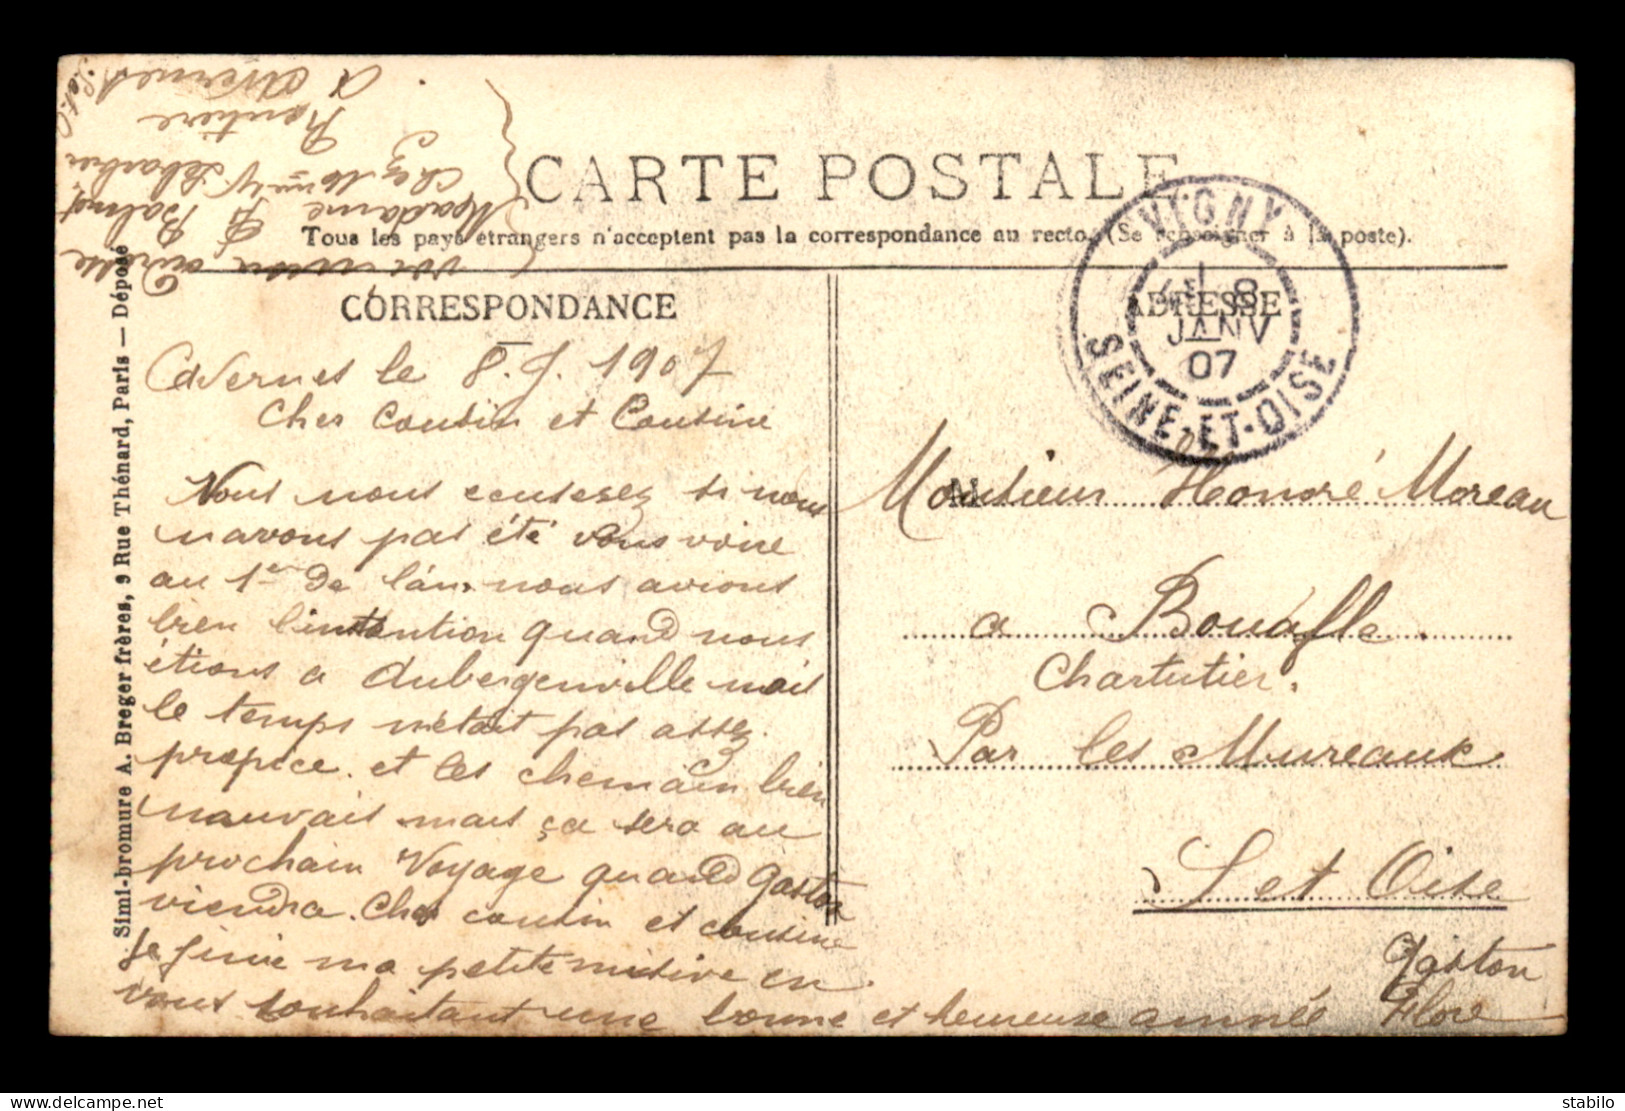 CARTE POSTALE
Tous les pays étrangers n'acceptent pas la correspondance au recto. (Se renseigner à la poste).
CORRESPONDANCE
ADRESSE
VIGNY
8
JANV
07
SEINE-ET-OISE
Simi-bromure A. Breger frères, 9 Rue Thénard, Paris — Déposé
Avernes le 8. J. 1907
Cher Cousin et Cousine
Vous nous excuserez si nous
navons pas été vous voire
au 1er de l'an. nous avions
bien l'intention quand nous
étions a Aubergenville mais
le temps n'était pas assez
propice. et les chemain bien
mauvais mais ça sera au
prochain Voyage quand Gaston
viendra. Cher cousin et cousine
Je finie ma petite misive en
vous souhaitant une bonne et heureuse année
Gaston
Flore
Monsieur Honoré Moreau
a Bouafle
Chartutier.
Par les Mureaux
S et Oise
adresse
Madame
chez
Rentière
a Avernes
S et O
delcampe.net
stabilo